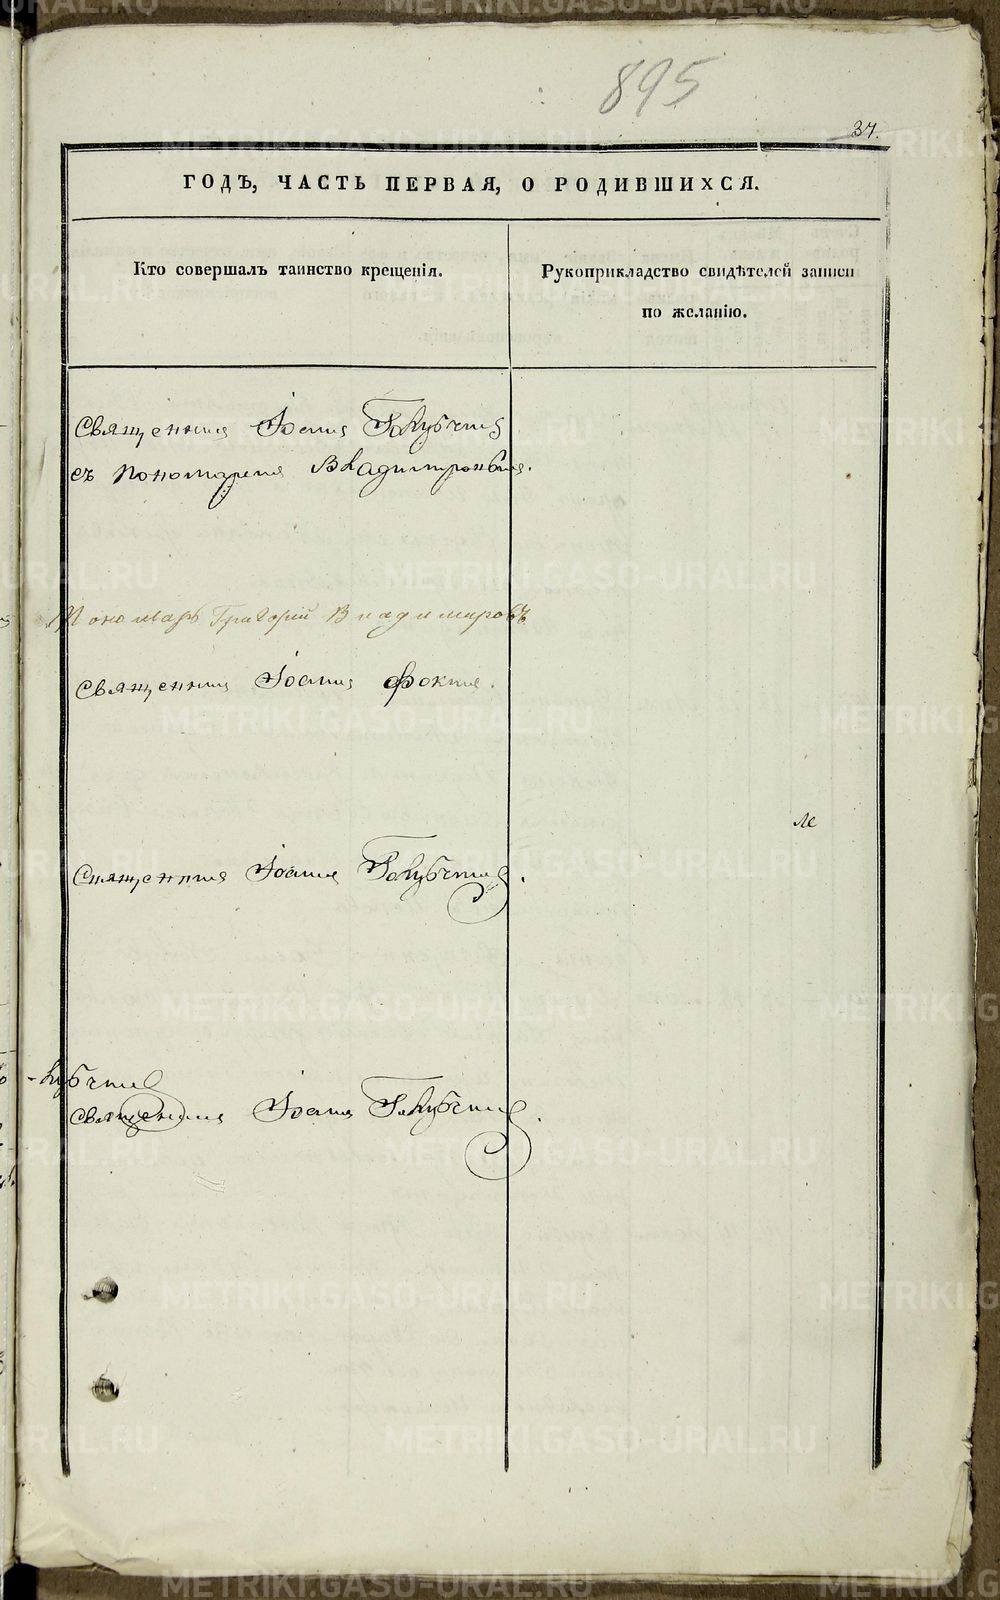 895
37.
ГОДЪ, ЧАСТЬ ПЕРВАЯ, О РОДИВШИХСЯ.
Кто совершалъ таинство крещенія.
Рукоприкладство свидѣтелей записи
по желанію.
Священникъ Іоаннъ Голубчиковъ
съ пономаремъ Владимировымъ.
Пономарь Григорій Владимировъ
Священникъ Іоаннъ Фокинъ.
Священникъ Іоаннъ
Священникъ Іоаннъ
METRIKI.GASO-URAL.RU